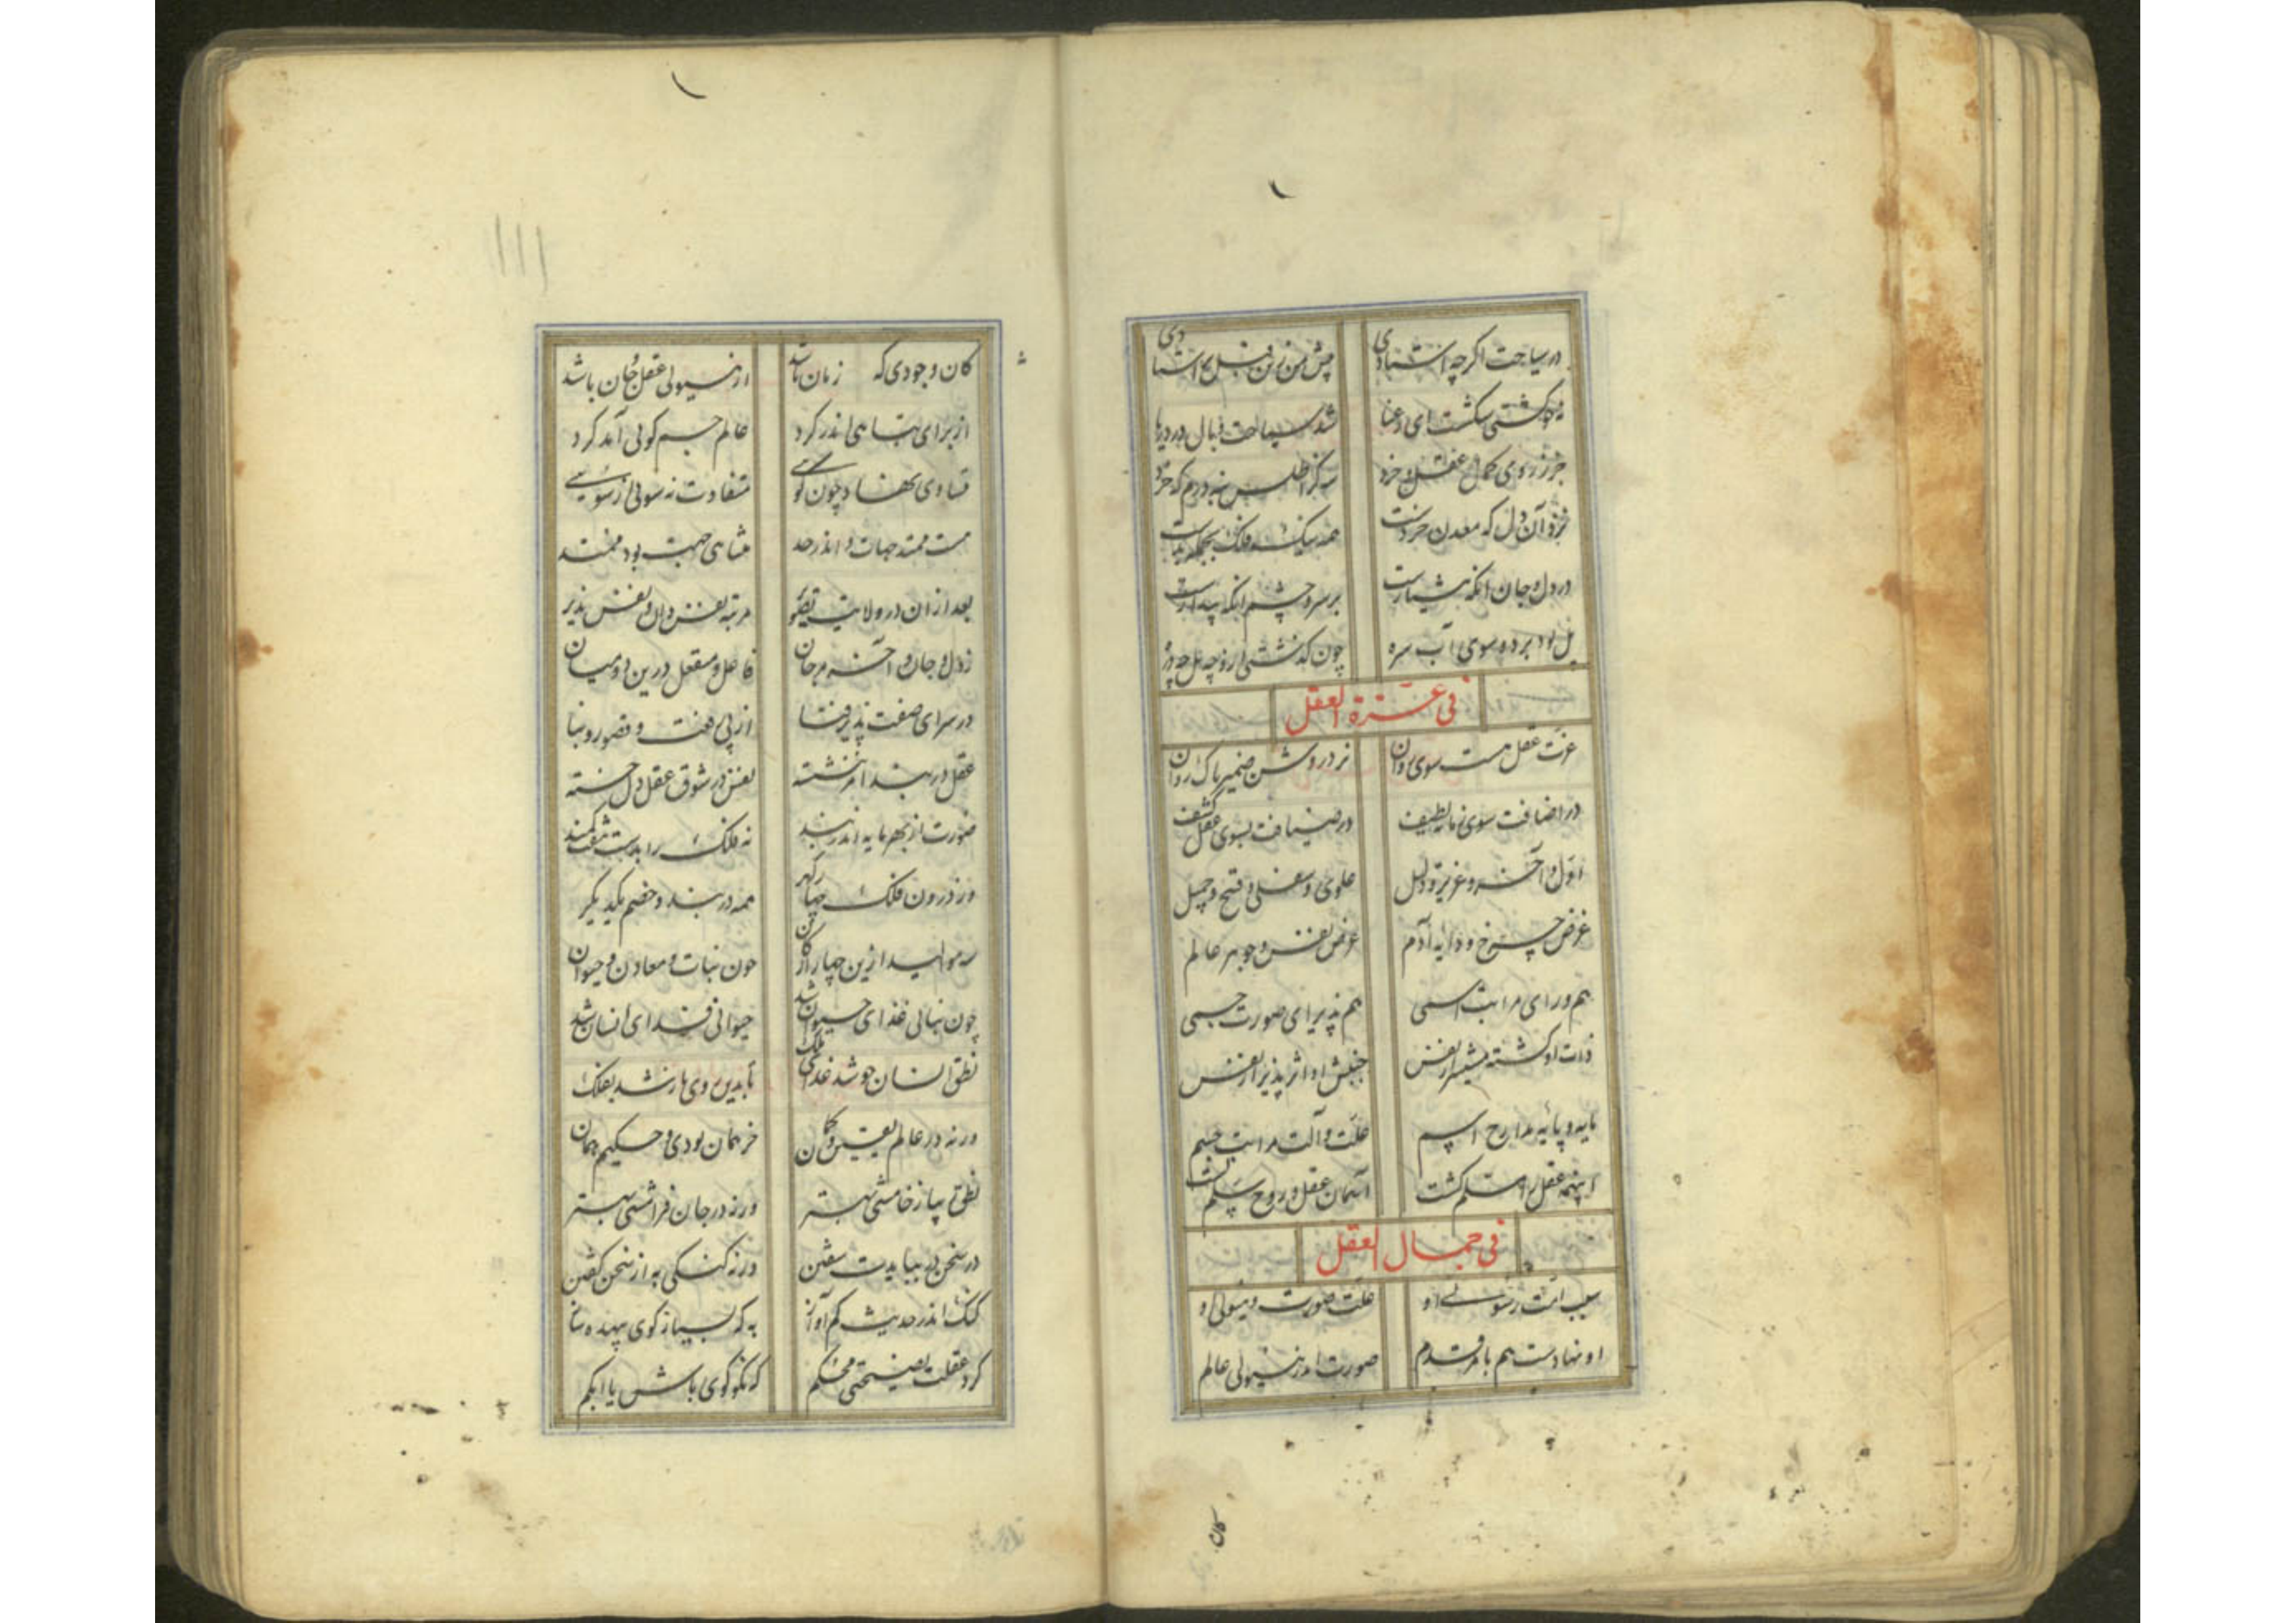 در سیاحت اگر چه استادی
پیش من زین قبل نه استادی
شد سباحت وبال در دریا
جز ز روی کمال عقل و خرد
به کز اطلس نه درم که خرد
خرد آن دل که معدن خردست
در دل و جان آنکه هشیارست
بر سر و چشم آنکه بیدارست
پل بود بر ده سوی آب سره
چون گذشتی ازو چه پل چه دره
فی عزة العقل
عزت عقل هست سوی روان
نزد روشن ضمیر پاک روان
در اضافت سوی نما لطیف
در ضیافت بسوی عقل کثیف
اول و آخر و عزیز و ذلیل
علوی و سفلی و قبیح و جمیل
غرض چرخ و دایه آدم
عرض نفس و جوهر عالم
هم ورای مراتب اسمی
هم پذیرای صورت جسمی
ذات او گشته بیشتر از نفس
جنبش او اثر پذیر از نفس
مایه و پایه مدارج اسم
علت و آلت مراتب جسم
اینهمه عقل را مسلم گشت
آسمان عقل و روح سلم گشت
فی جمال العقل
علت صورت و هیولی او
او نهادست هم بامر قدم
صورت اندر هیولی عالم
کان
کان وجودی که زمان باشد
از هیولی عقل و جان باشد
از برای تباهی اندر کرد
عالم جسم کولی آمد کرد
تساوی نهاد چون کوسی
متفاوت نه سولی از سوسی
هست ممتد جهات و اندر حد
متناهی جهت بود ممتد
بعد از ان در ولایت تصویر
مرتبه نفس دان و نفس پذیر
ز دل و جان و آخر مرجان
فاعل و منفعل درین دو میان
در سرای صفت پذیر فنا
از پی هفت و قصور و بنا
عقل در بند امر بنشسته
نفس در شوق عقل دل خسته
صورت از بهر مایه اندر بند
نه فلک را بدست شوق کمند
وز درون فلک چهار گهر
همه در بند و خصم یکدیگر
سه موالید ازین چهار ارکان
چون نبات و معادن و حیوان
چون نباتی غذای حیوان شد
حیوانی فدای انسان شد
نطق انسان چو شد غذای ملک
تا بدین روی باز شد بفلک
ورنه در عالم یقین و گمان
خر همان بودی و حکیم همان
نطق بیاز خامشی بهتر
ورنه در جان فرامشی بهتر
در سخن در ببایدت سفتن
ورنه گنگی به از سخن گفتن
گنگ اندر حدیث کم آواز
به که بسیار گوی بیهده تاز
کرد عقلت نصیحتی محکم
که نکو گوی باش یا ابکم